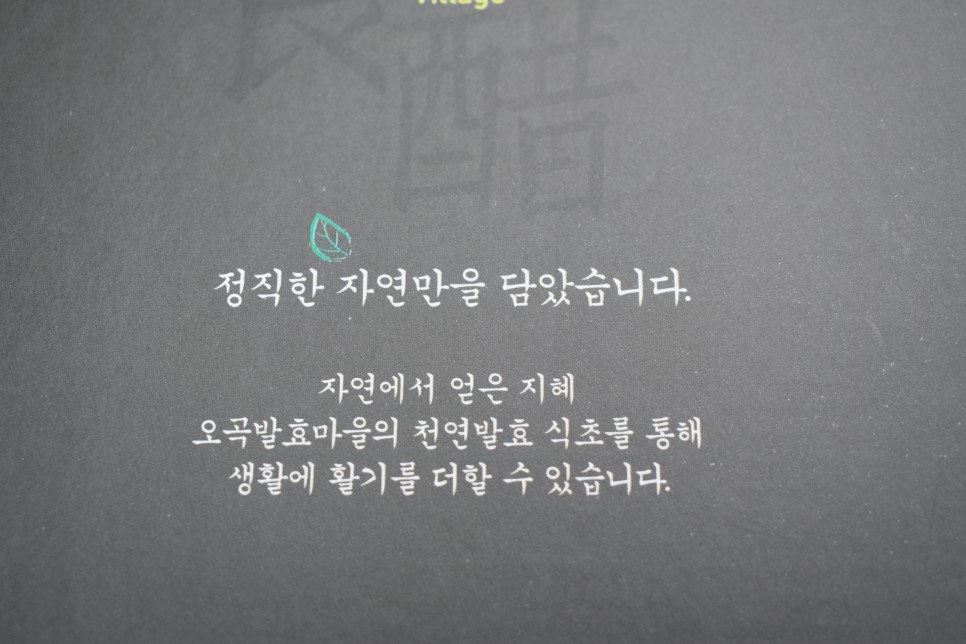 Village
醋
정직한 자연만을 담았습니다.
자연에서 얻은 지혜
오곡발효마을의 천연발효 식초를 통해
생활에 활기를 더할 수 있습니다.